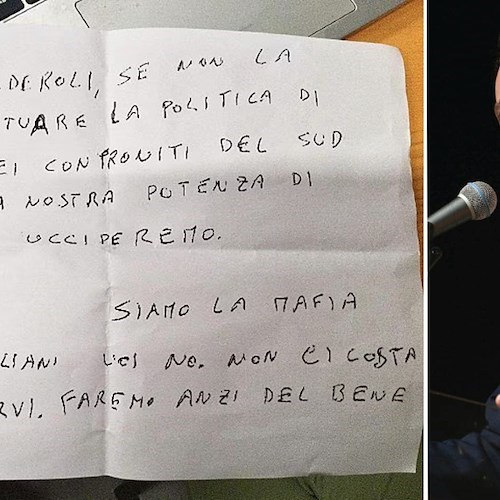 DEROLI, SE NON LA
TUARE LA POLITICA DI
EI CONFRONITI DEL SUD
A NOSTRA POTENZA DI
UCCIDEREMO.
SIAMO LA MAFIA
LIANI NO. NON CI COSTA
RVI. FAREMO ANZI DEL BENE